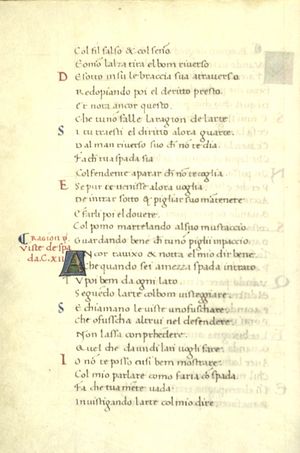 Col fil falso & col seño
E con lalza tira el bom riverso
D E sotto insu le braccia sua atraverso
Redopiando poi el deritto presto.
Et nota ancor questo.
Che tu no falle la ragion de larte
S i tu traesti el diritto alora guarte.
Dal man riverso suo chi no te dia
Fa chi tua spada sia
Col fendente aparar chi no te coglia
E Se pur te venisse alora voglia
De intrar sotto & pigliar suo matenere
E farli poi el dovere.
Col pomo martelando al suo mustaccio
Guardando bene chi tuno pigli inpaccio
Ragion p
viste de spa
da. C. xii
A ncor tavixo & nota el mio dir bene.
Che quando sei ameza spada intrato
V poi bem da ogni lato.
Seguedo larte col bom vistegiare.
S E chiamano le viste uno fuschare
Che ofuscha altrui nel defendere
Non lassa comprhedere.
Quel che da un di lati vogli fare.
I O no te posso cusi bem mostrare.
Col mio parlare como faria cō spada
Fa che tua mēte vada
Investigando larte col mio dire